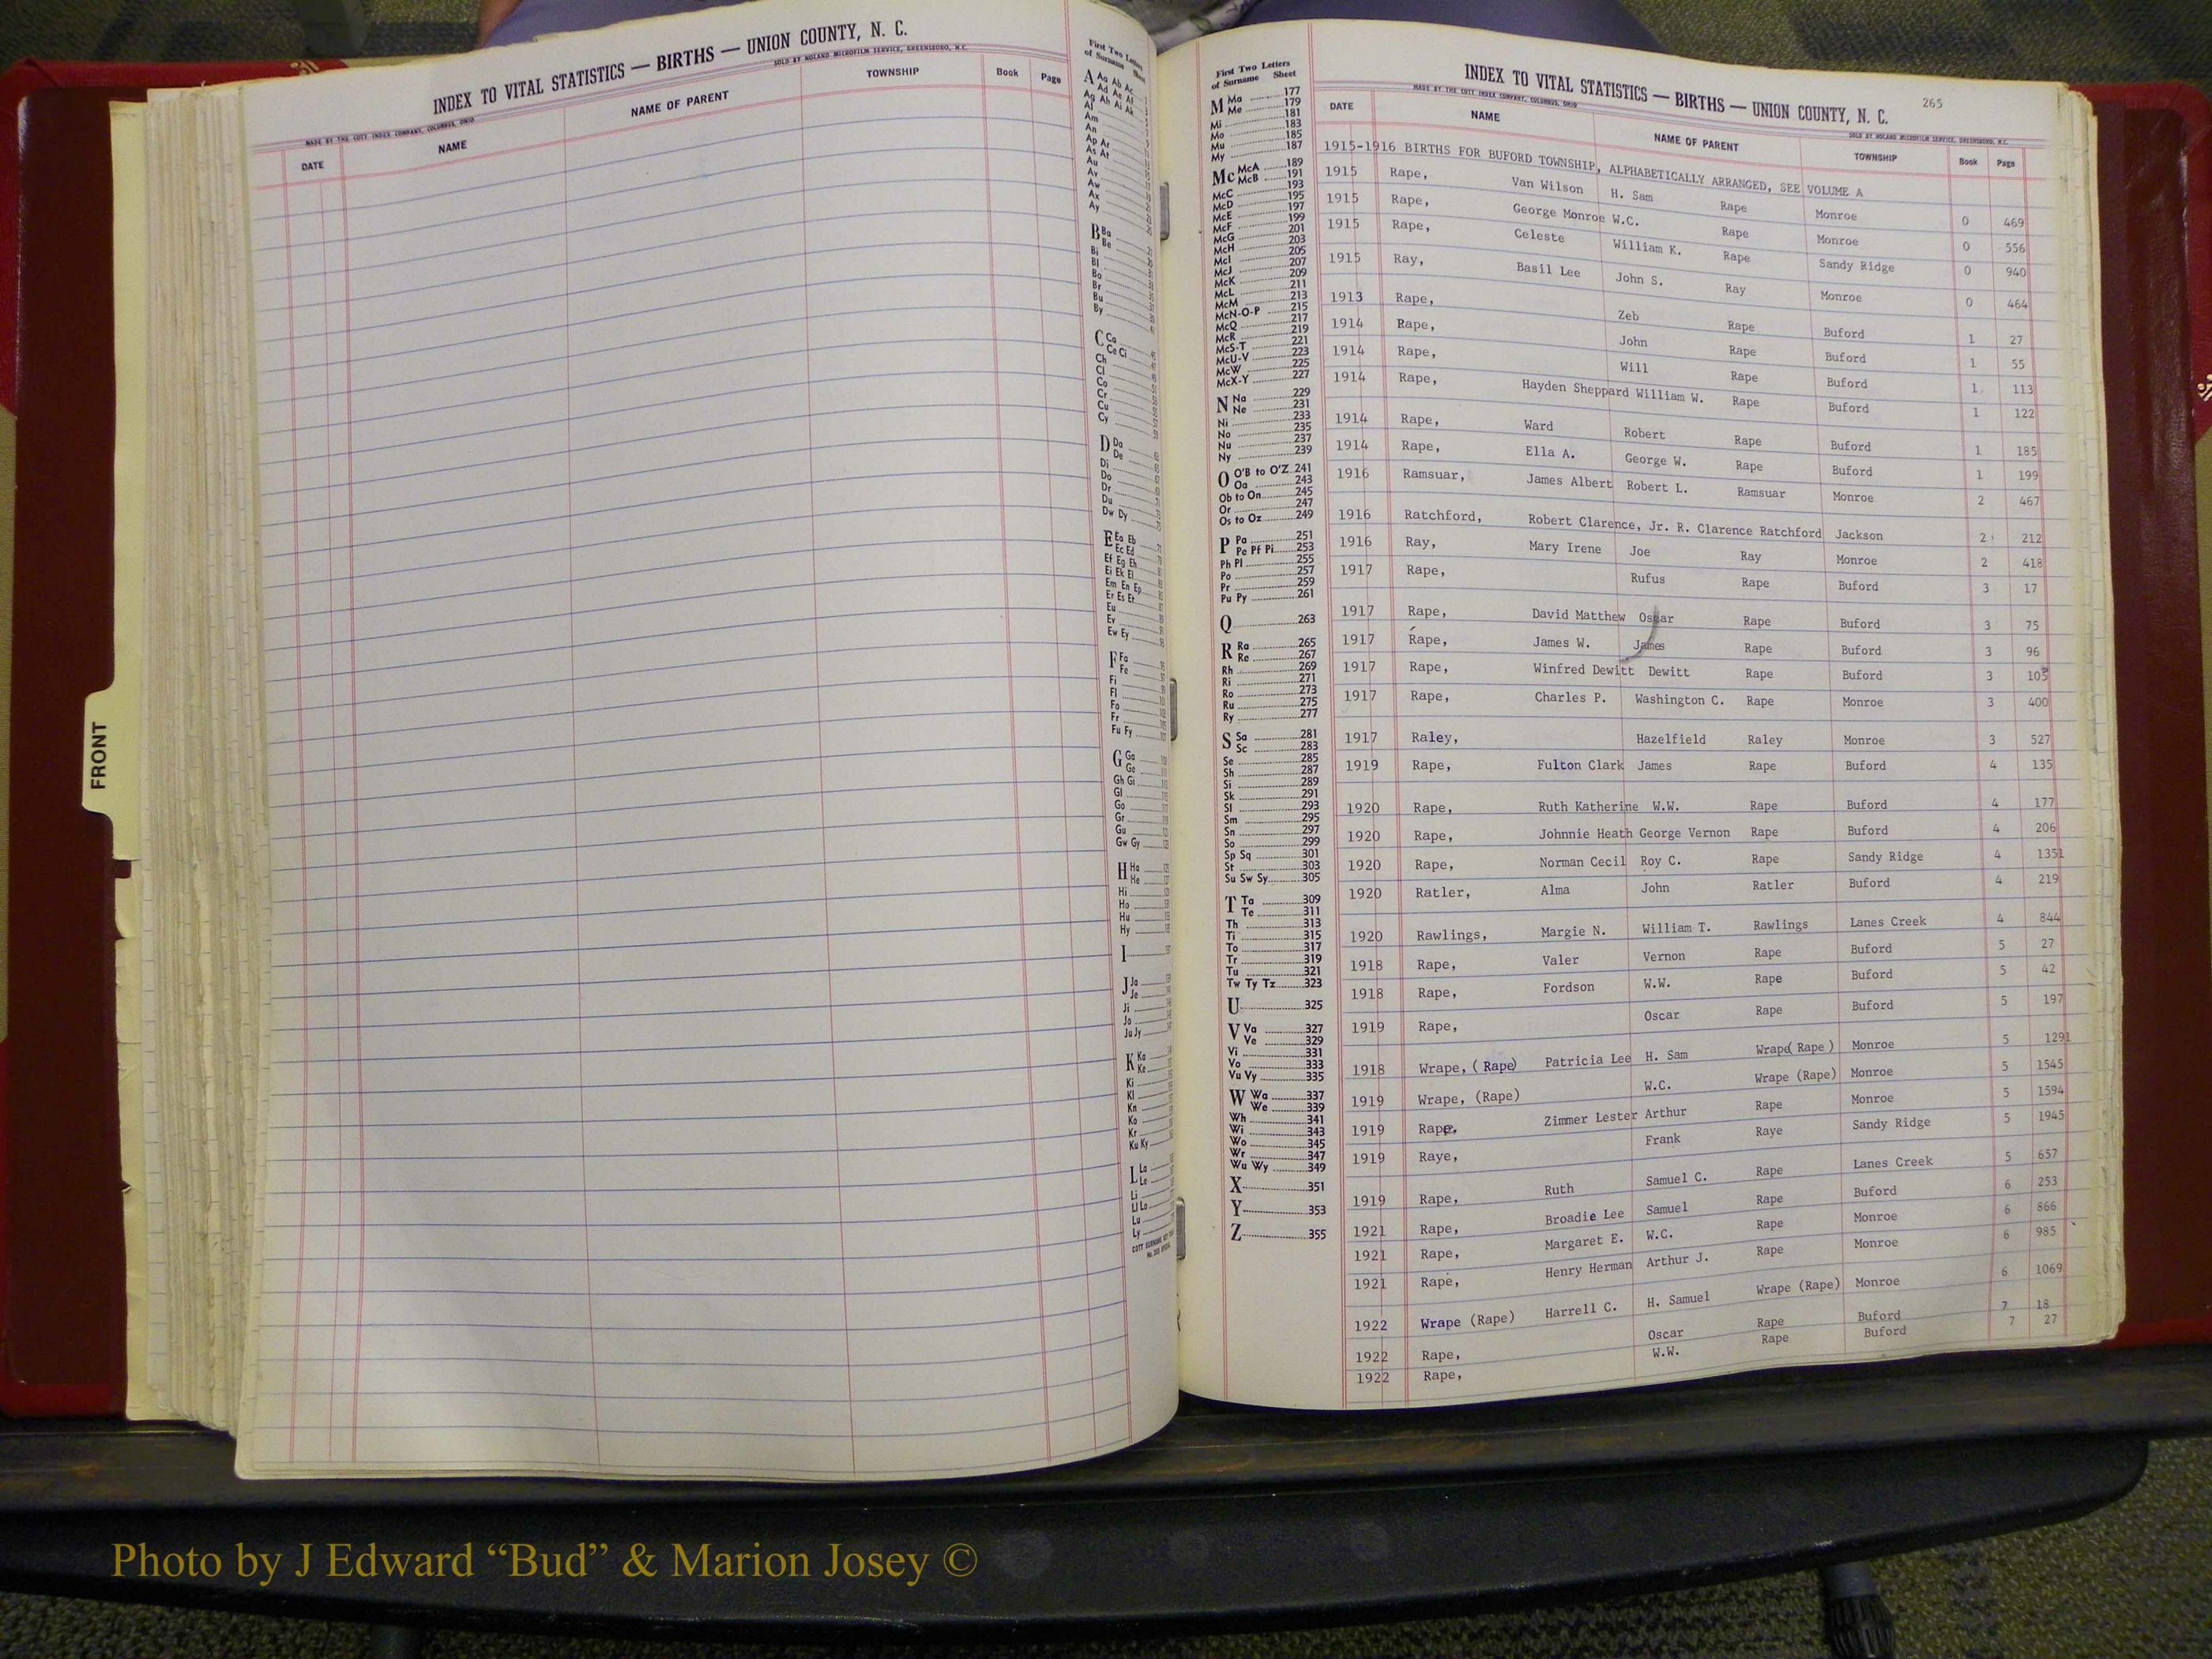 INDEX TO VITAL STATISTICS — BIRTHS — UNION COUNTY, N. C.
MADE BY THE COTT INDEX COMPANY, COLUMBUS, OHIO SOLD BY NOLAND MICROFILM SERVICE, GREENSBORO, N.C.
DATE NAME NAME OF PARENT TOWNSHIP Book Page
FRONT
First Two Letters
of Surname Sheet
A Aa Ab Ac
Ad Ae Af
Ag Ah Ai Ak
Al
Am
An
Ap Ar
As At
Au
Av
Aw
Ax
Ay
B Ba
Be
Bi
Bl
Bo
Br
Bu
By
C Ca
Ce Ci
Ch
Cl
Co
Cr
Cu
Cy
D Da
De
Di
Do
Dr
Du
Dw Dy
E Ea Eb
Ec Ed
Ef Eg Eh
Ei Ek El
Em En Ep
Er Es Et
Eu
Ev
Ew Ey
F Fa
Fe
Fi
Fl
Fo
Fr
Fu Fy
G Ga
Ge
Gh Gi
Gl
Go
Gr
Gu
Gw Gy
H Ha
He
Hi
Ho
Hu
Hy
I
J Ja
Je
Ji
Jo
Ju Jy
K Ka
Ke
Ki
Kl
Kn
Ko
Kr
Ku Ky
L La
Le
Li
Ll Lo
Lu
Ly
First Two Letters
of Surname Sheet
M Ma 177
Me 179
Mi 181
Mo 183
Mu 185
My 187
Mc McA 189
McB 191
McC 193
McD 195
McE 197
McF 199
McG 201
McH 203
McI 205
McJ 207
McK 209
McL 211
McM 213
McN-O-P 215
McQ 217
McR 219
McS-T 221
McU-V 223
McW 225
McX-Y 227
N Na 229
Ne 231
Ni 233
No 235
Nu 237
Ny 239
O O'B to O'Z 241
Oa 243
Ob to On 245
Or 247
Os to Oz 249
P Pa 251
Pe Pf Pi 253
Ph Pl 255
Po 257
Pr 259
Pu Py 261
Q 263
R Ra 265
Re 267
Rh 269
Ri 271
Ro 273
Ru 275
Ry 277
S Sa 281
Sc 283
Se 285
Sh 287
Si 289
Sk 291
Sl 293
Sm 295
Sn 297
So 299
Sp Sq 301
St 303
Su Sw Sy 305
T Ta 309
Te 311
Th 313
Ti 315
To 317
Tr 319
Tu 321
Tw Ty Tz 323
U 325
V Va 327
Ve 329
Vi 331
Vo 333
Vu Vy 335
W Wa 337
We 339
Wh 341
Wi 343
Wo 345
Wr 347
Wu Wy 349
X 351
Y 353
Z 355
INDEX TO VITAL STATISTICS — BIRTHS — UNION COUNTY, N. C. 265
MADE BY THE COTT INDEX COMPANY, COLUMBUS, OHIO SOLD BY NOLAND MICROFILM SERVICE, GREENSBORO, N.C.
DATE NAME NAME OF PARENT TOWNSHIP Book Page
1915-1916 BIRTHS FOR BUFORD TOWNSHIP, ALPHABETICALLY ARRANGED, SEE VOLUME A
1915 Rape, Van Wilson H. Sam Rape Monroe 0 469
1915 Rape, George Monroe W.C. Rape Monroe 0 556
1915 Rape, Celeste William K. Rape Sandy Ridge 0 940
1915 Ray, Basil Lee John S. Ray Monroe 0 464
1913 Rape, Zeb Rape Buford 1 27
1914 Rape, John Rape Buford 1 55
1914 Rape, Will Rape Buford 1 113
1914 Rape, Hayden Sheppard William W. Rape Buford 1 122
1914 Rape, Ward Robert Rape Buford 1 185
1914 Rape, Ella A. George W. Rape Buford 1 199
1916 Ramsuar, James Albert Robert L. Ramsuar Monroe 2 467
1916 Ratchford, Robert Clarence, Jr. R. Clarence Ratchford Jackson 2 212
1916 Ray, Mary Irene Joe Ray Monroe 2 418
1917 Rape, Rufus Rape Buford 3 17
1917 Rape, David Matthew Oscar Rape Buford 3 75
1917 Rape, James W. James Rape Buford 3 96
1917 Rape, Winfred Dewitt Dewitt Rape Buford 3 105
1917 Rape, Charles P. Washington C. Rape Monroe 3 400
1917 Raley, Hazelfield Raley Monroe 3 527
1919 Rape, Fulton Clark James Rape Buford 4 135
1920 Rape, Ruth Katherine W.W. Rape Buford 4 177
1920 Rape, Johnnie Heath George Vernon Rape Buford 4 206
1920 Rape, Norman Cecil Roy C. Rape Sandy Ridge 4 1351
1920 Ratler, Alma John Ratler Buford 4 219
1920 Rawlings, Margie N. William T. Rawlings Lanes Creek 4 844
1918 Rape, Valer Vernon Rape Buford 5 27
1918 Rape, Fordson W.W. Rape Buford 5 42
1919 Rape, Oscar Rape Buford 5 197
1918 Wrape, (Rape) Patricia Lee H. Sam Wrape(Rape) Monroe 5 1291
1919 Wrape, (Rape) W.C. Wrape (Rape) Monroe 5 1545
1919 Rape, Zimmer Lester Arthur Rape Monroe 5 1594
1919 Raye, Frank Raye Sandy Ridge 5 1945
1919 Rape, Ruth Samuel C. Rape Lanes Creek 5 657
1921 Rape, Broadie Lee Samuel Rape Buford 6 253
1921 Rape, Margaret E. W.C. Rape Monroe 6 866
1921 Rape, Henry Herman Arthur J. Rape Monroe 6 985
1922 Wrape (Rape) Harrell C. H. Samuel Wrape (Rape) Monroe 6 1069
1922 Rape, Oscar Rape Buford 7 18
1922 Rape, W.W. Rape Buford 7 27
Photo by J Edward “Bud” & Marion Josey ©